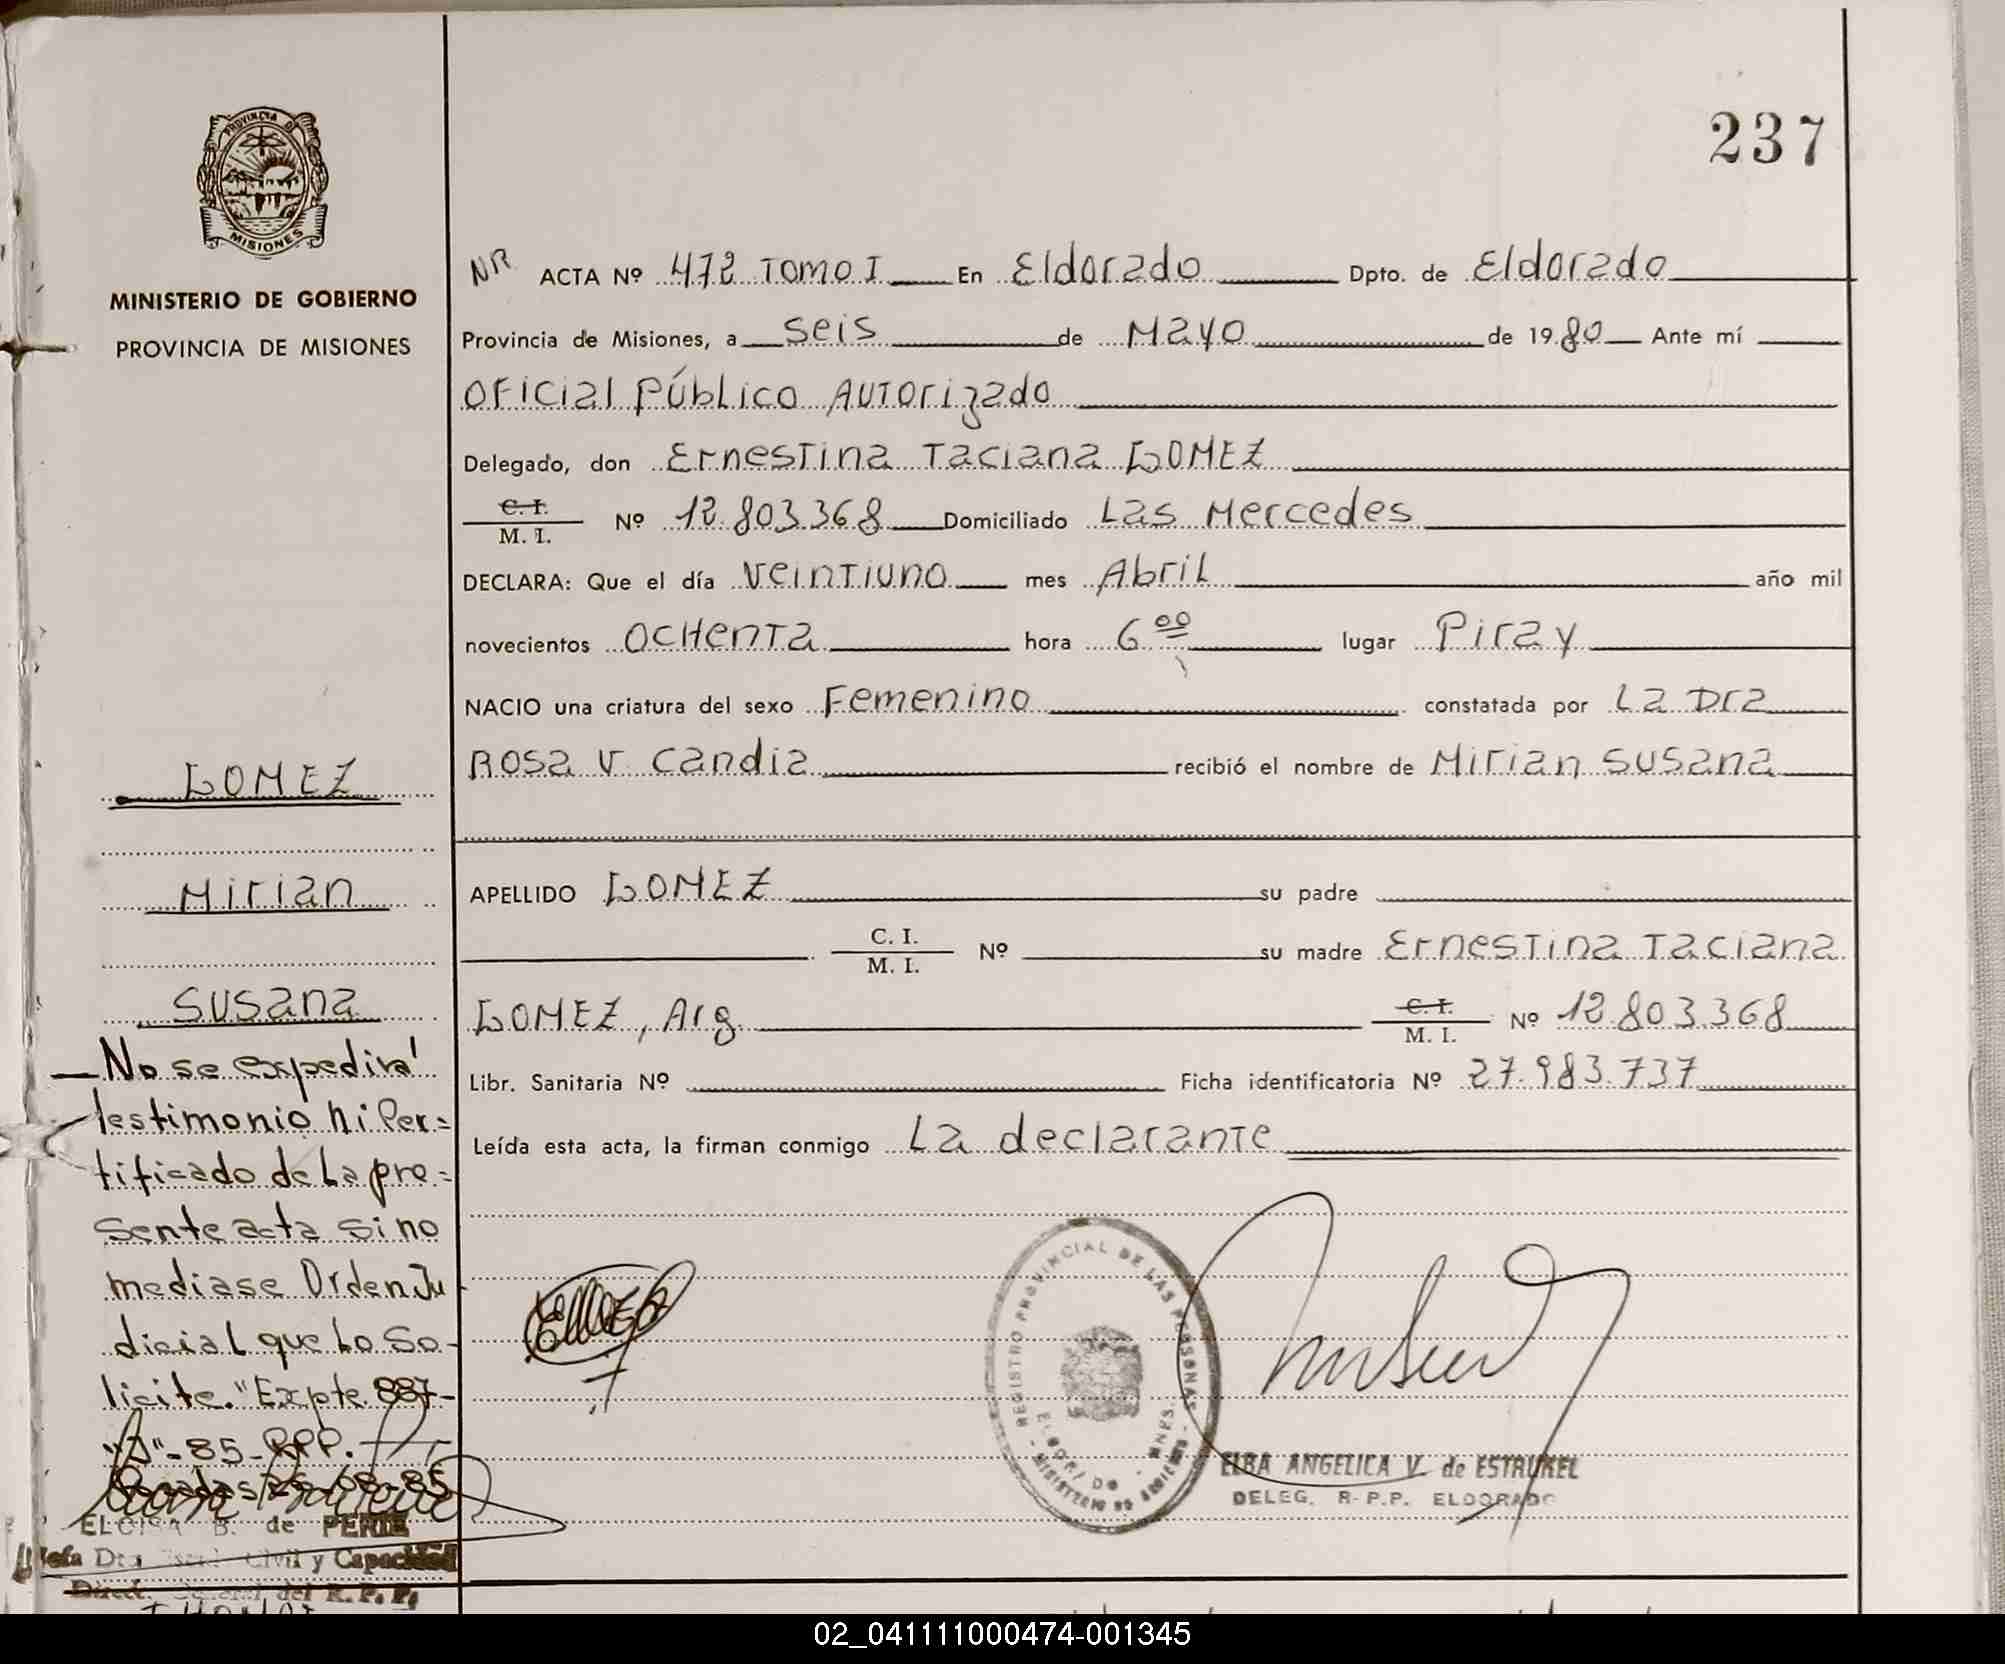 237
PROVINCIA DE
MISIONES
MINISTERIO DE GOBIERNO
PROVINCIA DE MISIONES
NR ACTA Nº 472 TOMO I En Eldorado Dpto. de Eldorado
Provincia de Misiones, a seis de Mayo de 1980 Ante mí
OFicial Público Autorizado
Delegado, don Ernestina Taciana GOMEZ
C. I.
M. I. Nº 12.803.368 Domiciliado Las Mercedes
DECLARA: Que el día veintiuno mes Abril año mil
novecientos OcHenta hora 6 00 lugar Piray
NACIO una criatura del sexo Femenino constatada por La Dra
Rosa V Candia recibió el nombre de Mirian Susana
APELLIDO GOMEZ su padre
C. I.
M. I. Nº su madre Ernestina Taciana
GOMEZ, Arg C. I.
M. I. Nº 12.803.368
Libr. Sanitaria Nº Ficha identificatoria Nº 27.983.737
Leída esta acta, la firman conmigo La declarante
GOMEZ
Mirian
Susana
No se expedirá
testimonio ni Cer=
tificado de la pre=
sente acta si no
mediase Orden Ju
dicial que lo so-
licite." Expte. 887-
"J"-85-RPP.
Posadas 26-08-85
ELOISA B. de
Jefa Civil y Capacidad
Direc. General del R. P. P.
REGISTRO PROVINCIAL DE LAS PERSONAS
ELDORADO - MNES.
MINISTERIO DE GOBIERNO
ELBA ANGELICA V. de ESTRUKEL
DELEG. R.P.P. ELDORADO
02_041111000474-001345